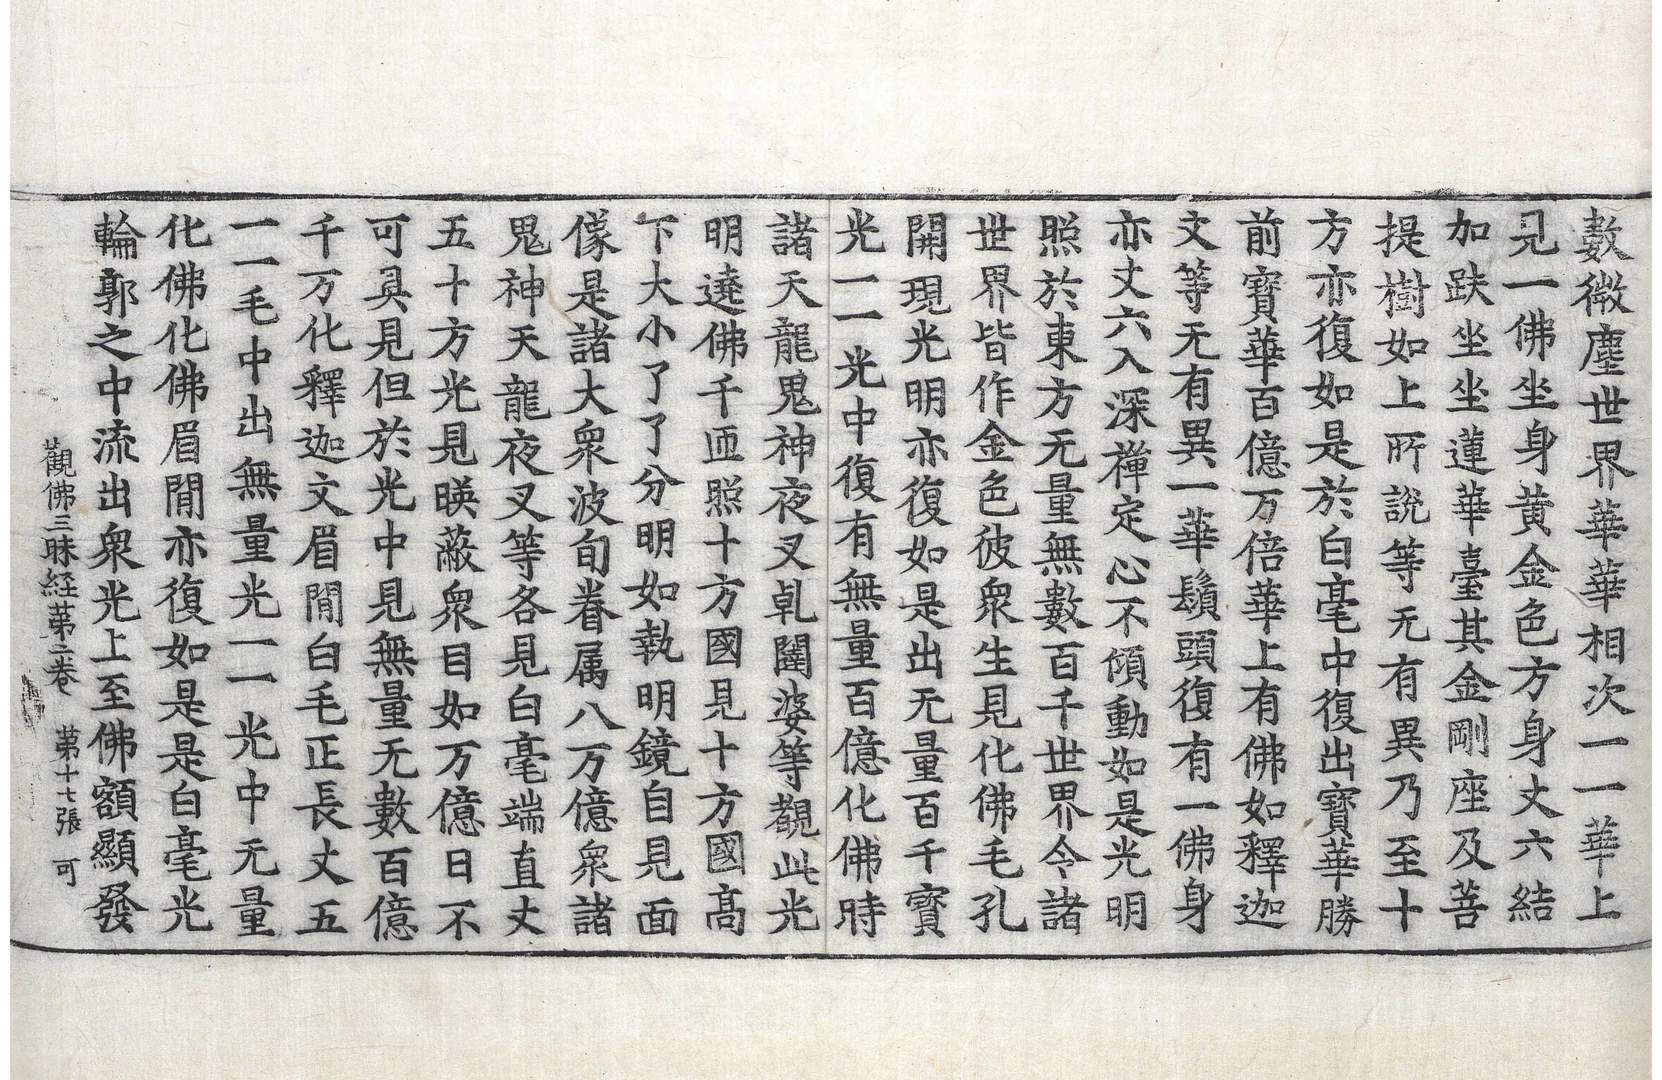 數微塵世界華華相次一一華上
見一佛坐身黃金色方身丈六結
加趺坐坐蓮華臺其金剛座及菩
提樹如上所說等无有異乃至十
方亦復如是於白毫中復出寶華勝
前寶華百億万倍華上有佛如釋迦
文等无有異一華鬚頭復有一佛身
亦丈六入深禪定心不傾動如是光明
照於東方无量無數百千世界令諸
世界皆作金色彼衆生見化佛毛孔
開現光明亦復如是出无量百千寶
光一一光中復有無量百億化佛時
諸天龍鬼神夜叉乹闥婆等覩此光
明遶佛千匝照十方國見十方國高
下大小了了分明如執明鏡自見面
像是諸大衆波旬眷属八万億衆諸
鬼神天龍夜叉等各見白毫端直丈
五十方光見暎蔽衆目如万億日不
可具見但於光中見無量无數百億
千万化釋迦文眉閒白毛正長丈五
一一毛中出無量光一一光中无量
化佛化佛眉閒亦復如是是白毫光
輪郭之中流出衆光上至佛額顯發
觀佛三昧経苐二卷 苐十七張 可